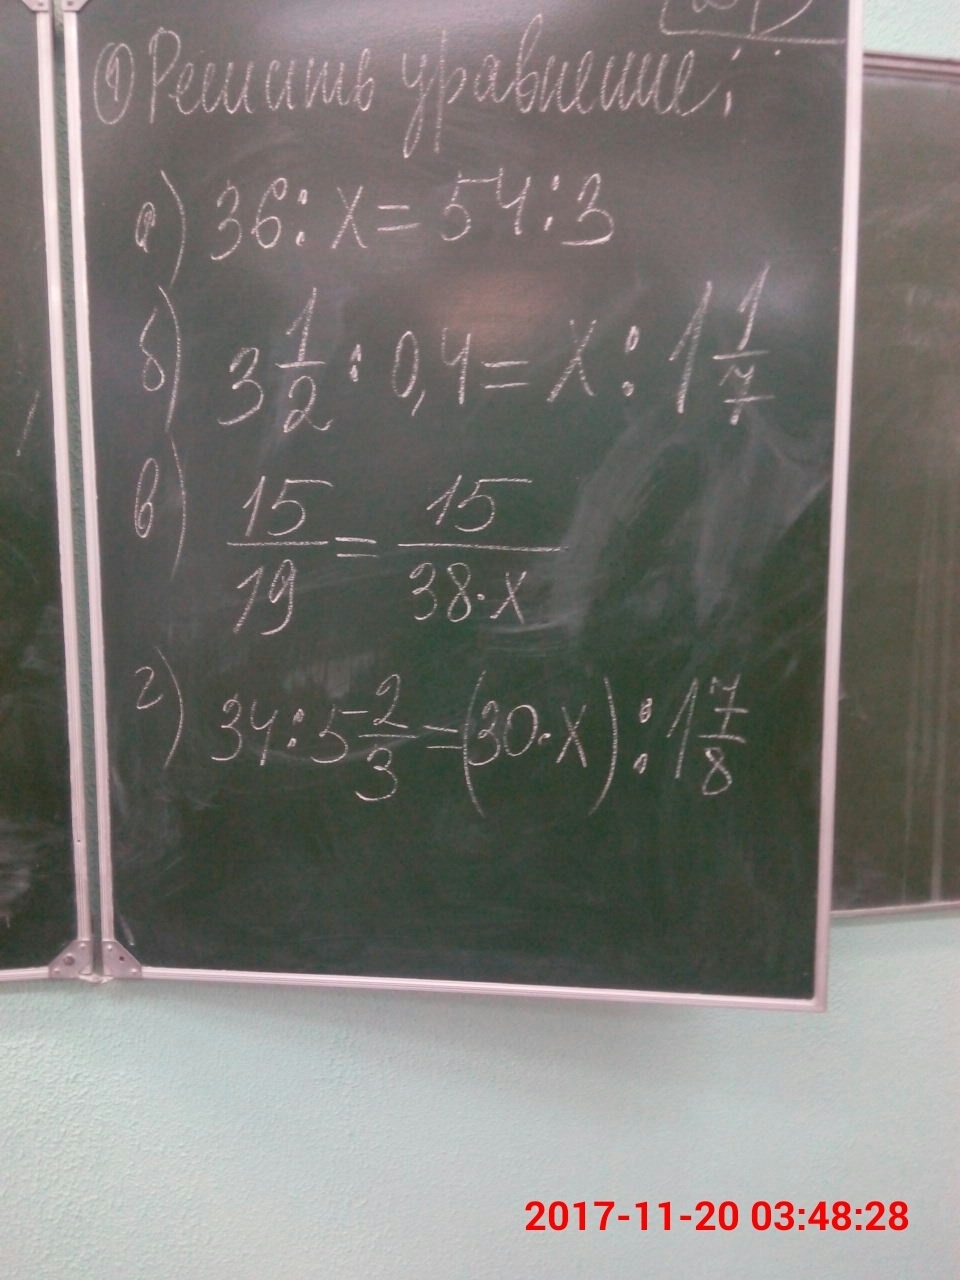 ① Решить уравнение:
а) 36 : x = 54 : 3
б) 3 1/2 : 0,4 = x : 1 1/7
в) 15/19 = 15/(38·x)
г) 34 : 5 2/3 = (30·x) : 1 7/8
2017-11-20 03:48:28